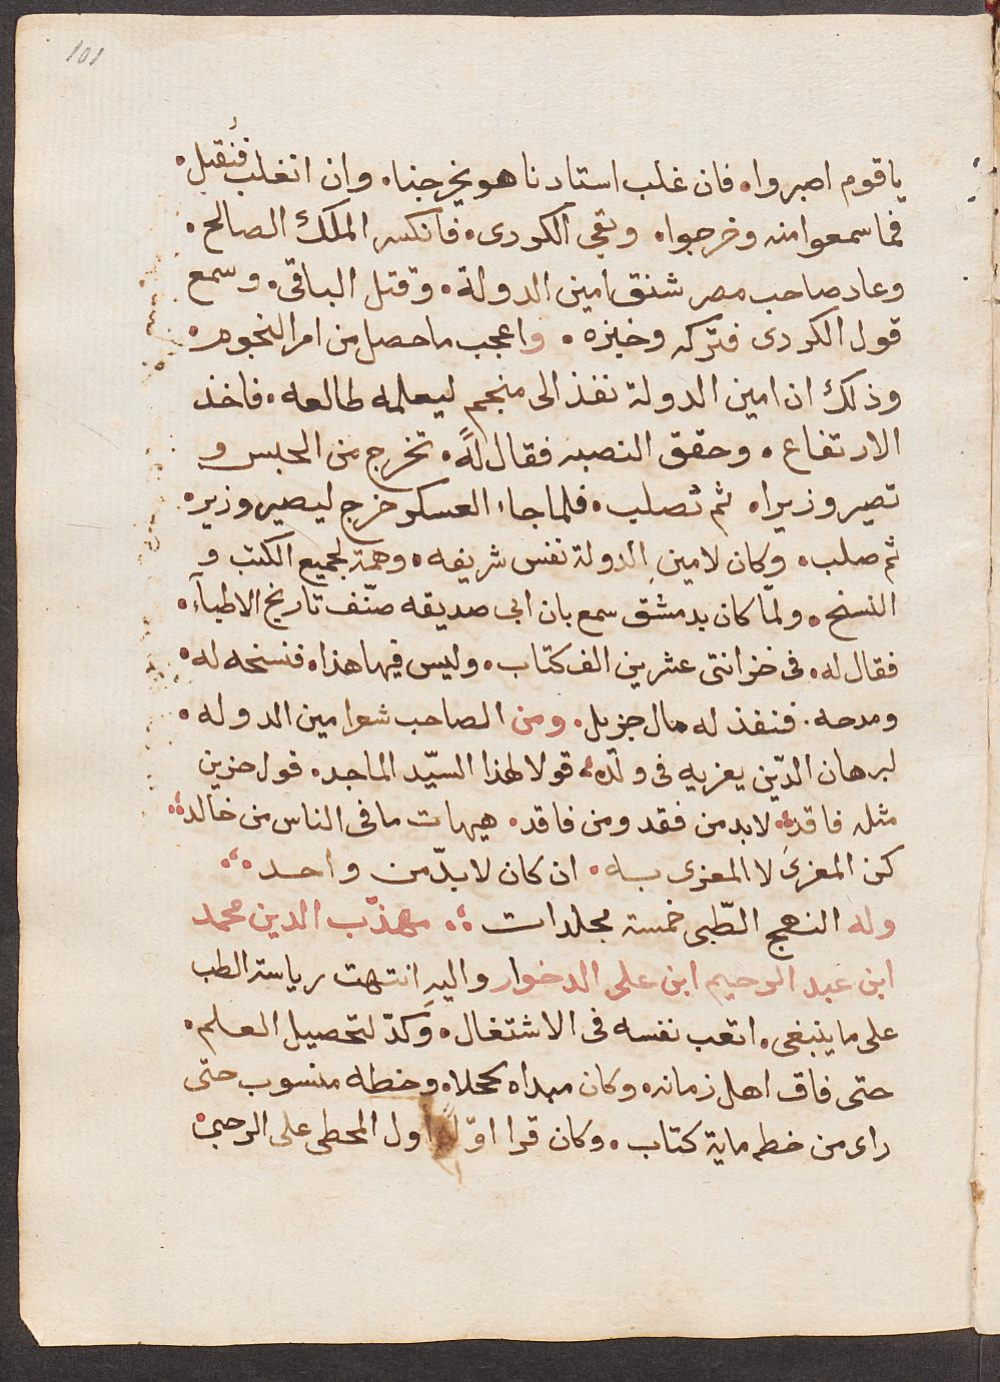 101
يا قوم اصبروا، فان غلب استادنا هو يخرجنا، وان انغلب فنُقبل،
فما سمعوا منه وخرجوا، وبقي الكردى، فانكسر الملك الصالح،
وعاد صاحب مصر شنق امين الدولة، وقتل الباقى، وسمع
قول الكردى فتركه وخيزه، واعجب ما حصل من امر النجوم،
وذلك ان امين الدولة نفذ الى منجم ليعلمه طالعه، فاخذ
الارتفاع، وحقق النصبه فقال لهً، تخرج من الحبس و
تصير وزيرا، ثم تصلب، فلما جاء العسكر خرج ليصير وزير،
ثم صلب، وكان لامين الدولة نفس شريفه، وهمة لجميع الكتب و
النسخ، ولمّا كان بدمشق سمع بان ابى صديقه صنّف تاريخ الاطبآء،
فقال له، فى خزانتى عشرين الف كتاب، وليس فيها هذا، فنسخه له،
ومدحه، فنفذ له مال جزيل، ومن الصاحب شعر امين الدوله،
لبرهان الدّين يعزيه فى ولده، قولا لهذا السيّد الماجد، قول حزين
مثله فاقد، لا بد من فقد ومن فاقد، هيهات ما فى الناس من خالد،
كن المعزىَ لا المعزى به، ان كان لا بدّ من واحد،
وله النهج الطّبى خمسة مجلدات، مهذّب الدين محمد
ابن عبد الرحيم ابن على الدخوار واليهِ انتهت رياسة الطب
على ما ينبغى، اتعب نفسه فى الاشتغال، وكدّ لتحصيل العلم،
حتى فاق اهل زمانه، وكان مبداه كحلا، وخطه منسوب حتى
راى من خطه ماية كتاب، وكان قرا اوّلاً اول المحطى على الرحبى،